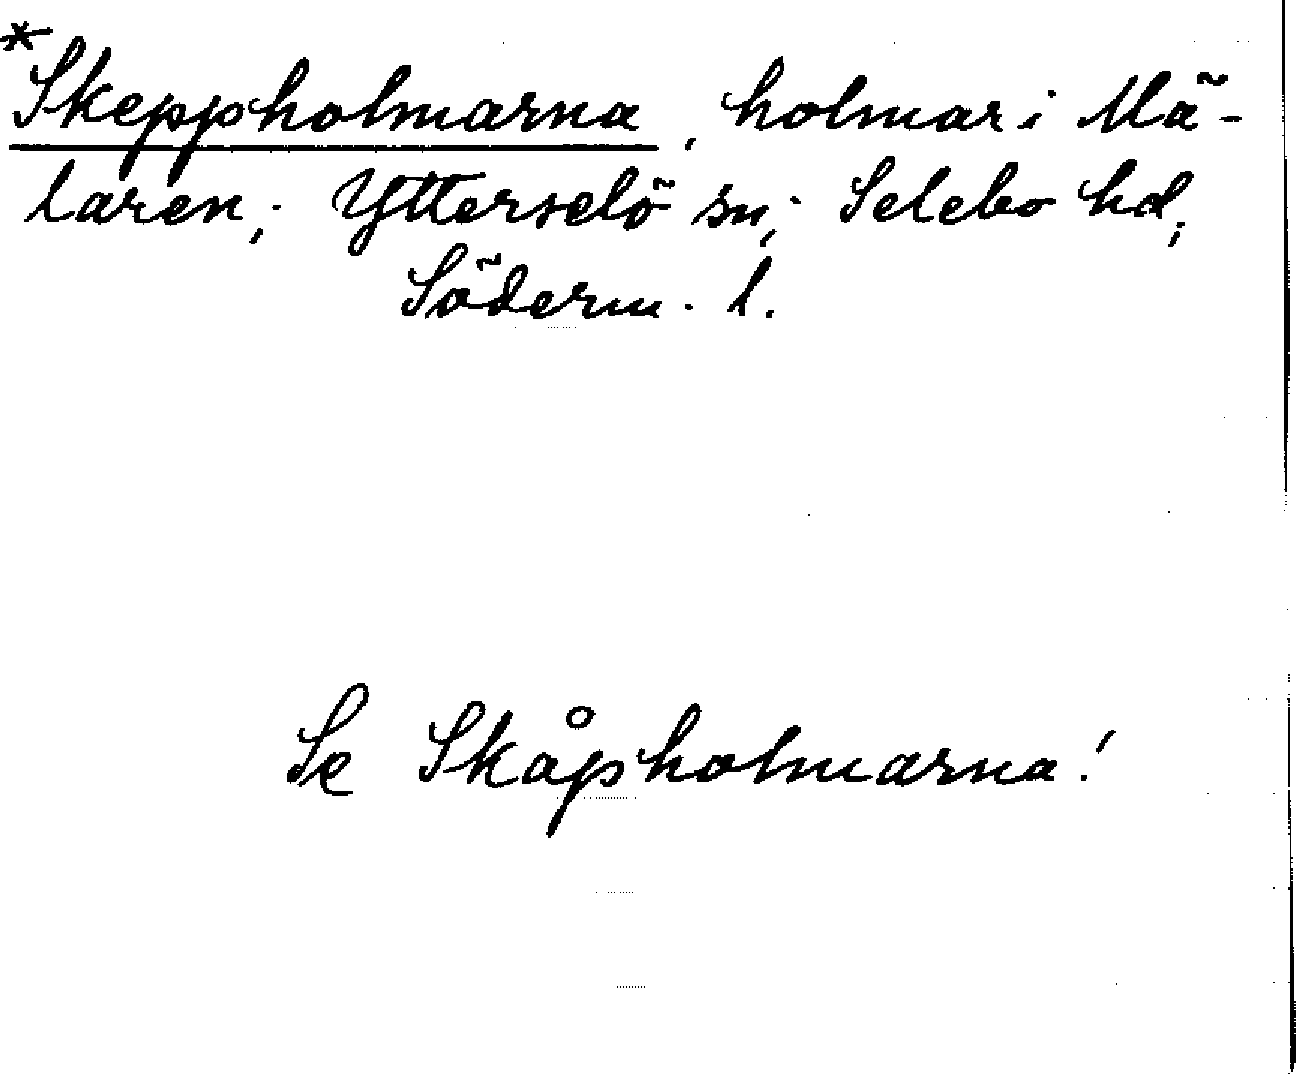 *Skeppholmarna, holmar i Mä-
laren; Ytterselö sn; Selebo hd,
Söderm. l.
Se Skåpholmarna!